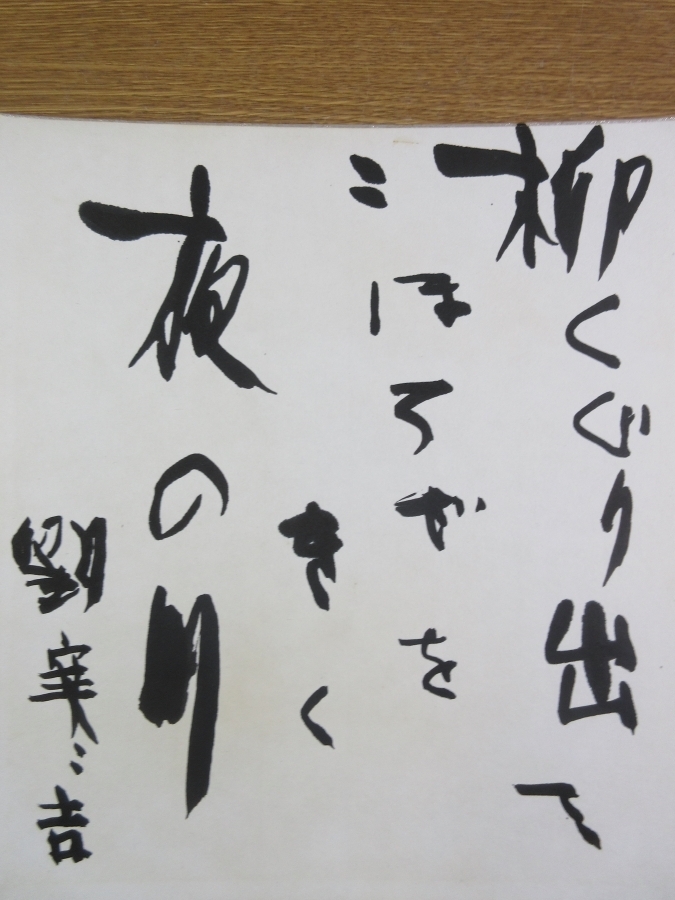 柳くぐり出て
こほろぎを
きく
夜の川
劉寒吉